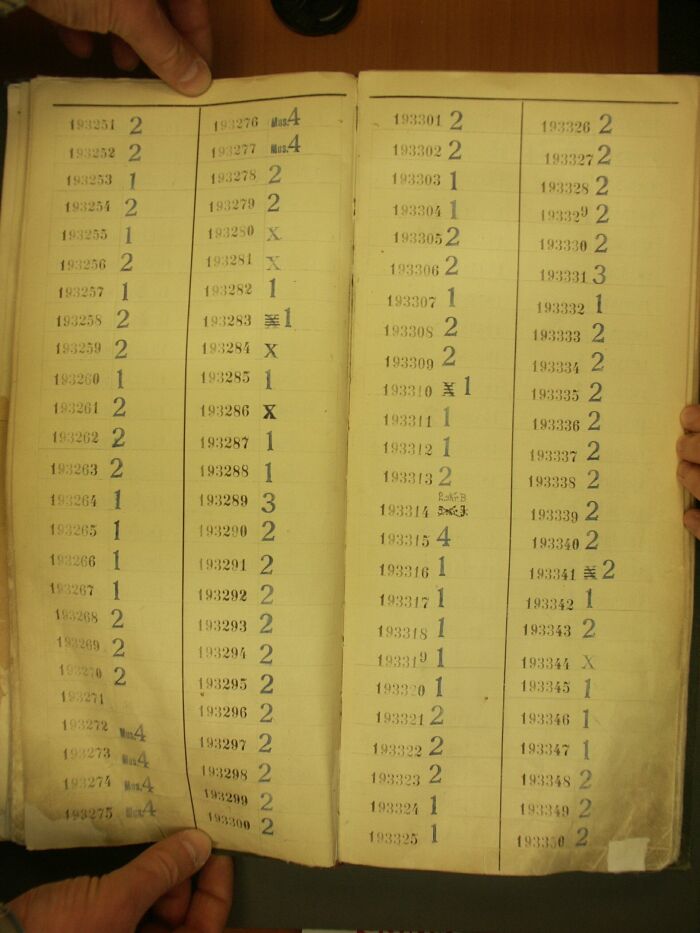 193251 2
193252 2
193253 1
193254 2
193255 1
193256 2
193257 1
193258 2
193259 2
193260 1
193261 2
193262 2
193263 2
193264 1
193265 1
193266 1
193267 1
193268 2
193269 2
193270 2
193271
193272 Mus.4
193273 Mus.4
193274 Mus.4
193275 Mus.4
193276 Mus.4
193277 Mus.4
193278 2
193279 2
193280 X
193281 X
193282 1
193283 1
193284 X
193285 1
193286 X
193287 1
193288 1
193289 3
193290 2
193291 2
193292 2
193293 2
193294 2
193295 2
193296 2
193297 2
193298 2
193299 2
193300 2
193301 2
193302 2
193303 1
193304 1
193305 2
193306 2
193307 1
193308 2
193309 2
193310 X 1
193311 1
193312 1
193313 2
193314
193315 4
193316 1
193317 1
193318 1
193319 1
193320 1
193321 2
193322 2
193323 2
193324 1
193325 1
193326 2
193327 2
193328 2
193329 2
193330 2
193331 3
193332 1
193333 2
193334 2
193335 2
193336 2
193337 2
193338 2
193339 2
193340 2
193341 X 2
193342 1
193343 2
193344 X
193345 1
193346 1
193347 1
193348 2
193349 2
193350 2